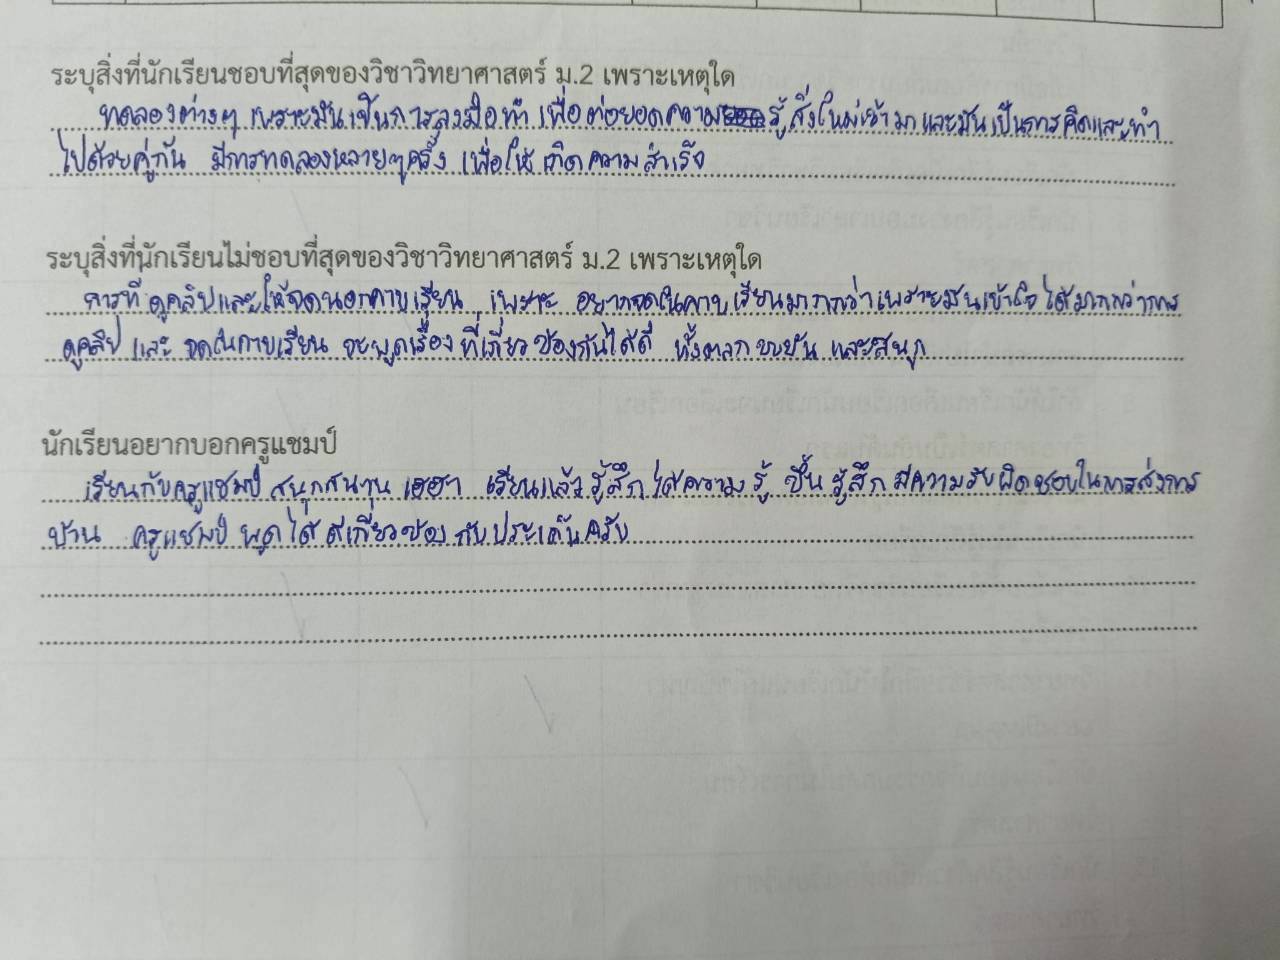 ระบุสิ่งที่นักเรียนชอบที่สุดของวิชาวิทยาศาสตร์ ม.2 เพราะเหตุใด
ทดลองต่างๆ เพราะมันเป็นการลงมือทำ เพื่อต่อยอดความรู้สิ่งใหม่เข้ามาและมันเป็นการคิดและทำ
ไปด้วยคู่กัน มีการทดลองหลายๆครั้ง เพื่อให้เกิดความสำเร็จ
ระบุสิ่งที่นักเรียนไม่ชอบที่สุดของวิชาวิทยาศาสตร์ ม.2 เพราะเหตุใด
การที่ดูคลิปและให้จดนอกคาบเรียน เพราะ อยากจดในคาบเรียนมากกว่าเพราะมันเข้าใจได้มากกว่าการ
ดูคลิป และ จดในคาบเรียน จะพูดเรื่องที่เกี่ยวข้องกันได้ดี ทั้งตลก ขบขัน และสนุก
นักเรียนอยากบอกครูแชมป์
เรียนกับครูแชมป์ สนุกสนาน เฮฮา เรียนแล้วรู้สึกได้ความรู้ ขึ้น รู้สึกมีความรับผิดชอบในการส่งการ
บ้าน ครูแชมป์ พูดได้ดีเกี่ยวข้องกับประเด็นครับ